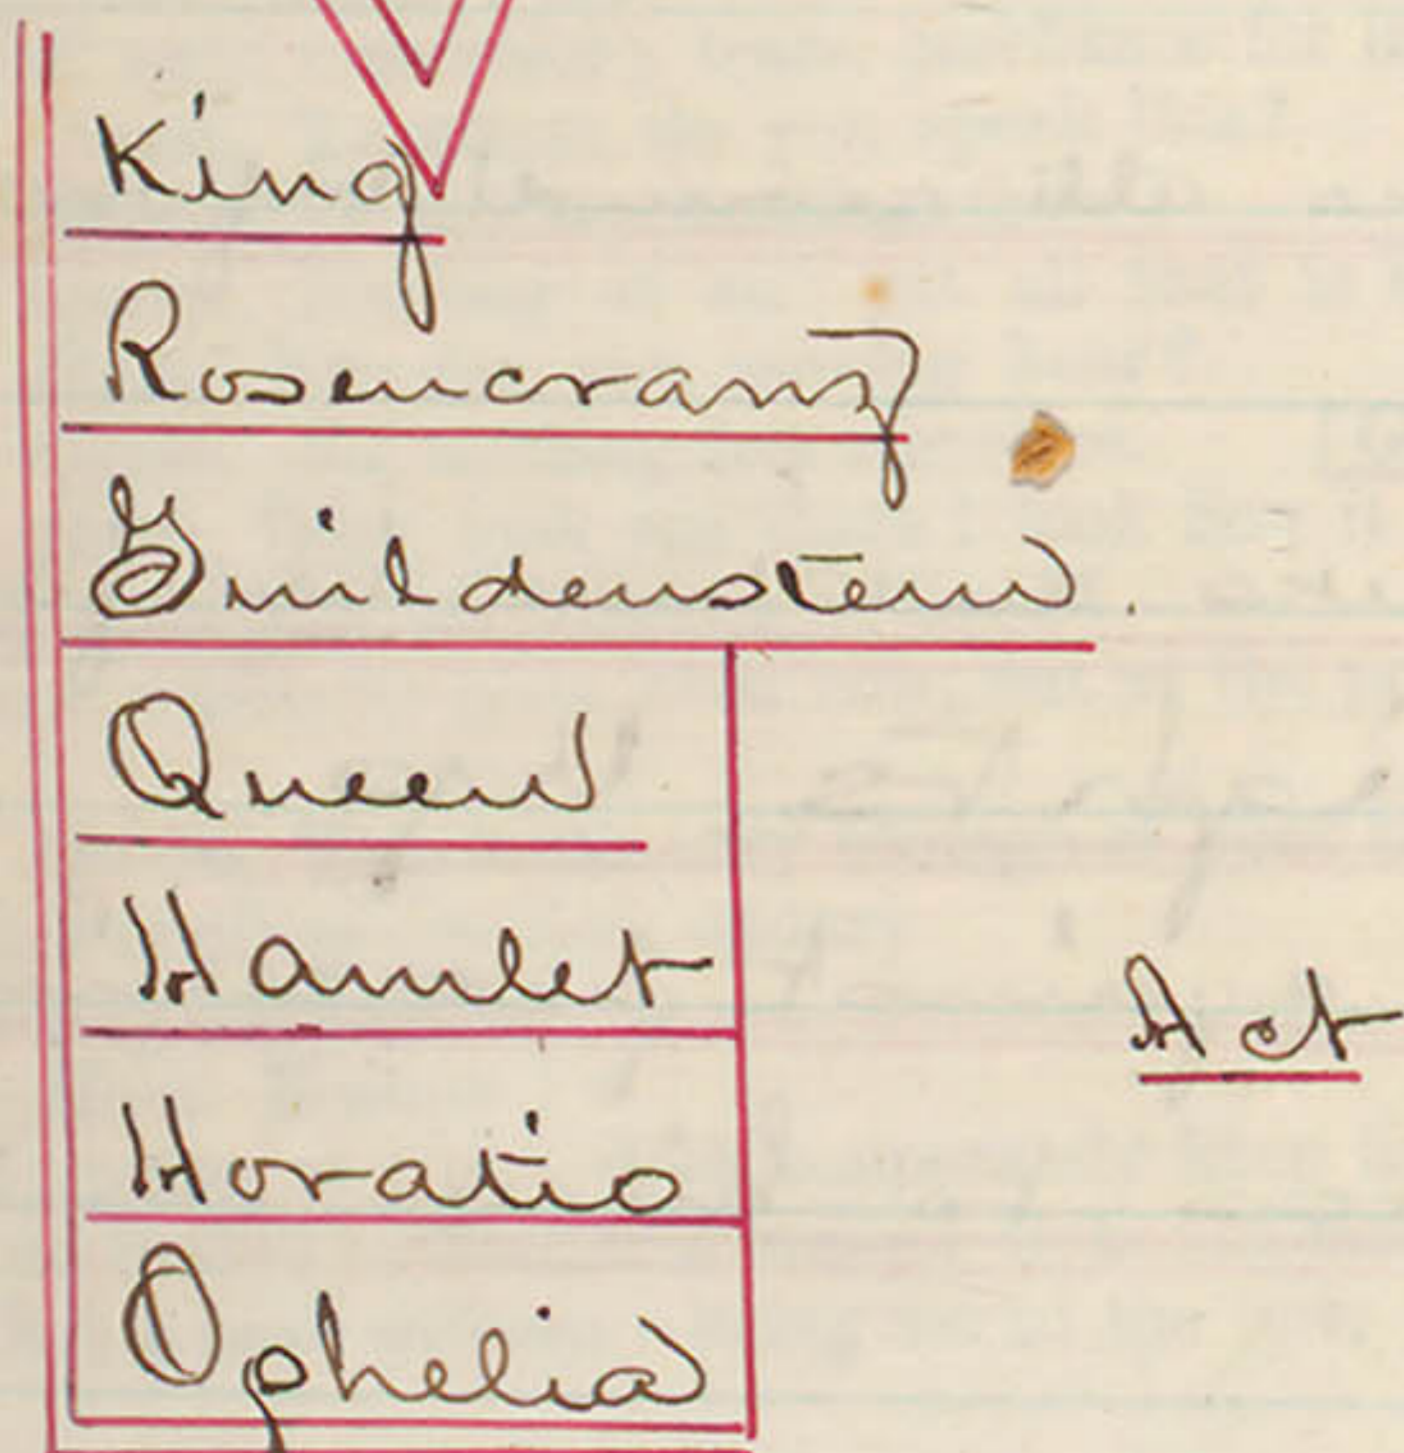 King
Rosencranz
Guildenstern.
Queen
Hamlet
Act
Horatio
Ophelia